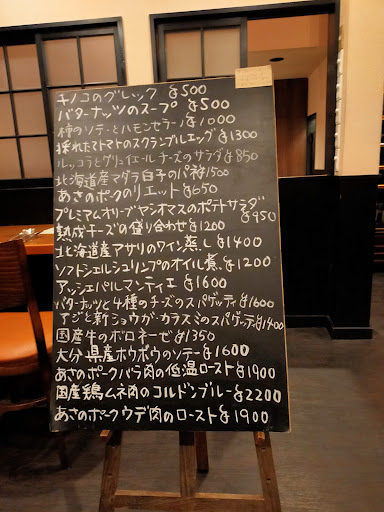 キノコのグレック ¥500
バターナッツのスープ ¥500
種のソテーとハモンセラーノ ¥1000
採れたてトマトのスクランブルエッグ ¥1300
ルッコラとグリュイエールチーズのサラダ ¥850
北海道産マダラ白子のパネ ¥1500
あさのポークのリエット ¥650
プレミアムオリーブヤシオマスのポテトサラダ ¥950
熟成チーズの盛り合わせ ¥1200
北海道産アサリのワイン蒸し ¥1400
ソフトシェルシュリンプのオイル煮 ¥1200
アッシェパルマンティエ ¥1600
バターナッツと4種のチーズのスパゲッティ ¥1600
アジと新ショウガ・カラスミのスパゲッティ ¥1400
国産牛のボロネーゼ ¥1350
大分県産ホウボウのソテー ¥1600
あさのポークバラ肉の低温ロースト ¥1900
国産鶏ムネ肉のコルドンブルー ¥2200
あさのポークウデ肉のロースト ¥1900